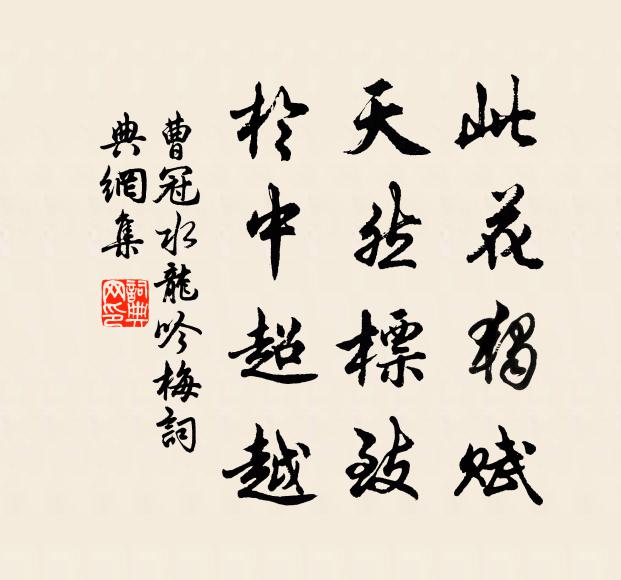 此花獨賦
天然標致
於中超越
曹冠水龍吟梅詞
典網集
詞典网印